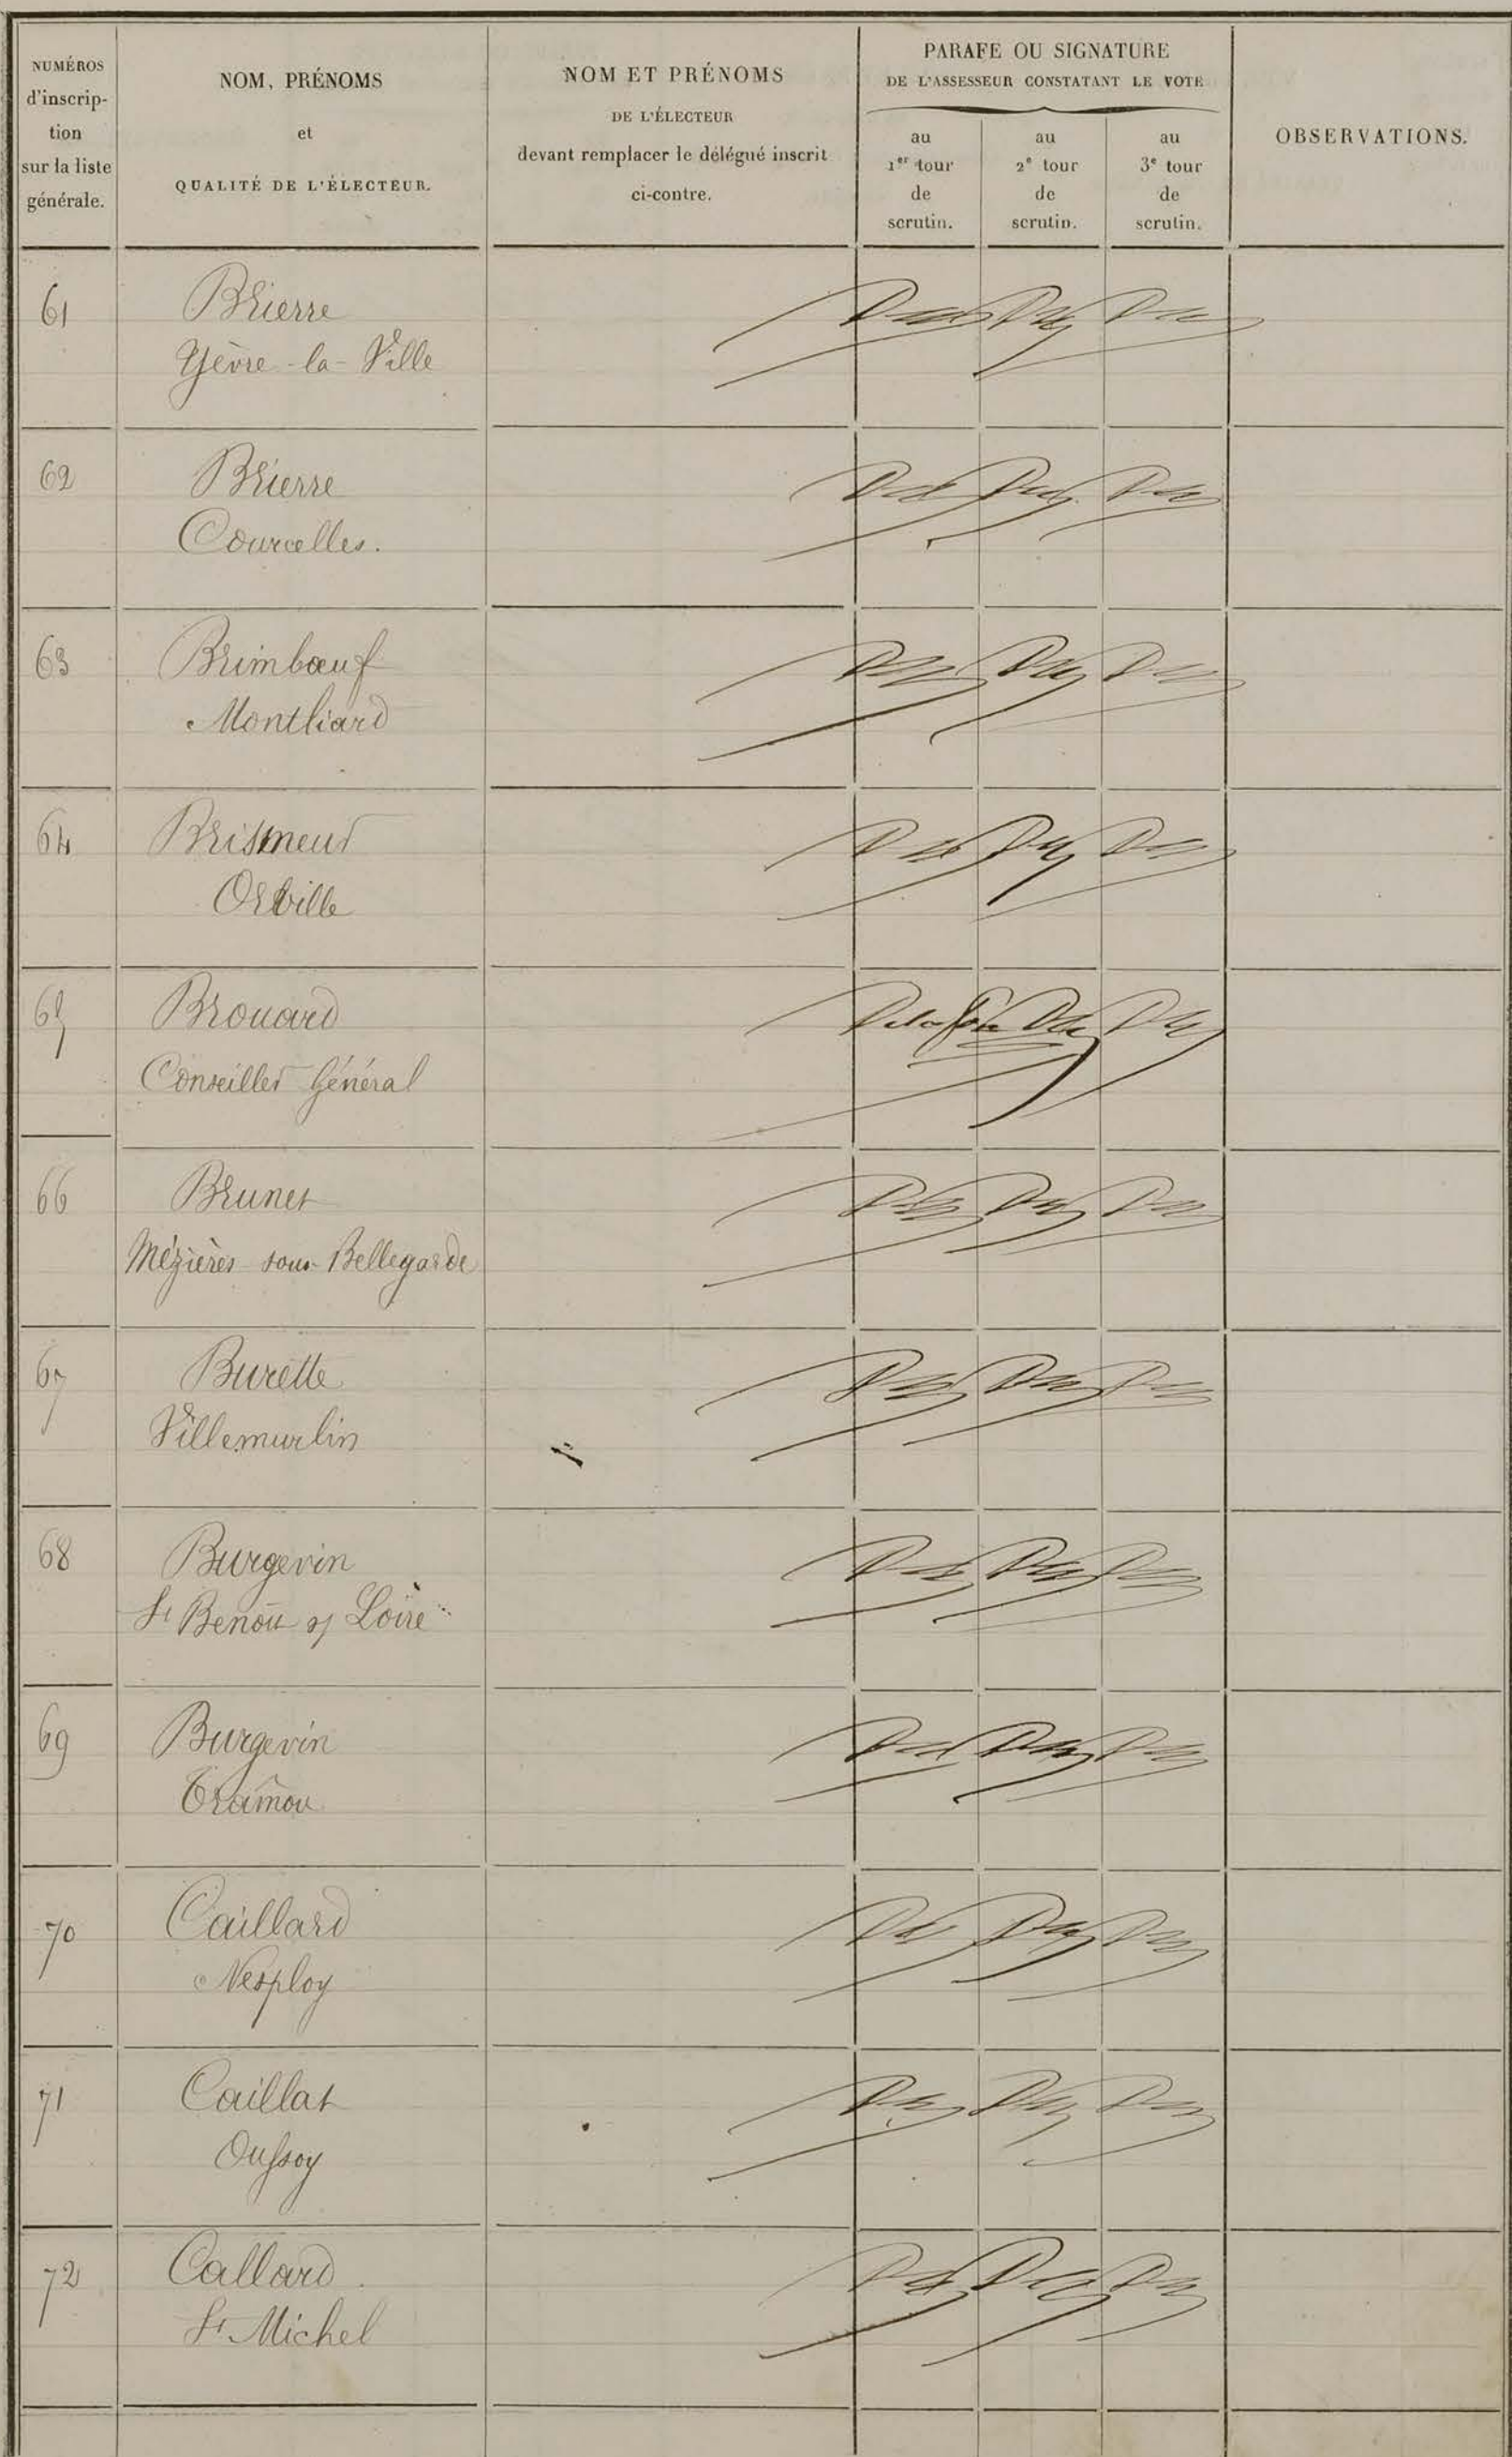 NUMÉROS
d'inscrip-
tion
sur la liste
générale.
NOM, PRÉNOMS
et
QUALITÉ DE L'ÉLECTEUR.
NOM ET PRÉNOMS
DE L'ÉLECTEUR
devant remplacer le délégué inscrit
ci-contre.
PARAFE OU SIGNATURE
DE L'ASSESSEUR CONSTATANT LE VOTE
au
1er tour
de
scrutin.
au
2e tour
de
scrutin.
au
3e tour
de
scrutin.
OBSERVATIONS.
61 Brierre
Yèvre-la-Ville
62 Brierre
Courcelles.
63 Brimbœuf
Montliard
64
Orville
65 Brouard
Conseiller Général
66 Brunet
Mézières sous Bellegarde
67 Burette
Villemurlin
68 Burgevin
St Benoit s/ Loire
69 Burgevin
70 Caillard
Nesploy
71 Caillat
Oussoy
72 Callard
St Michel